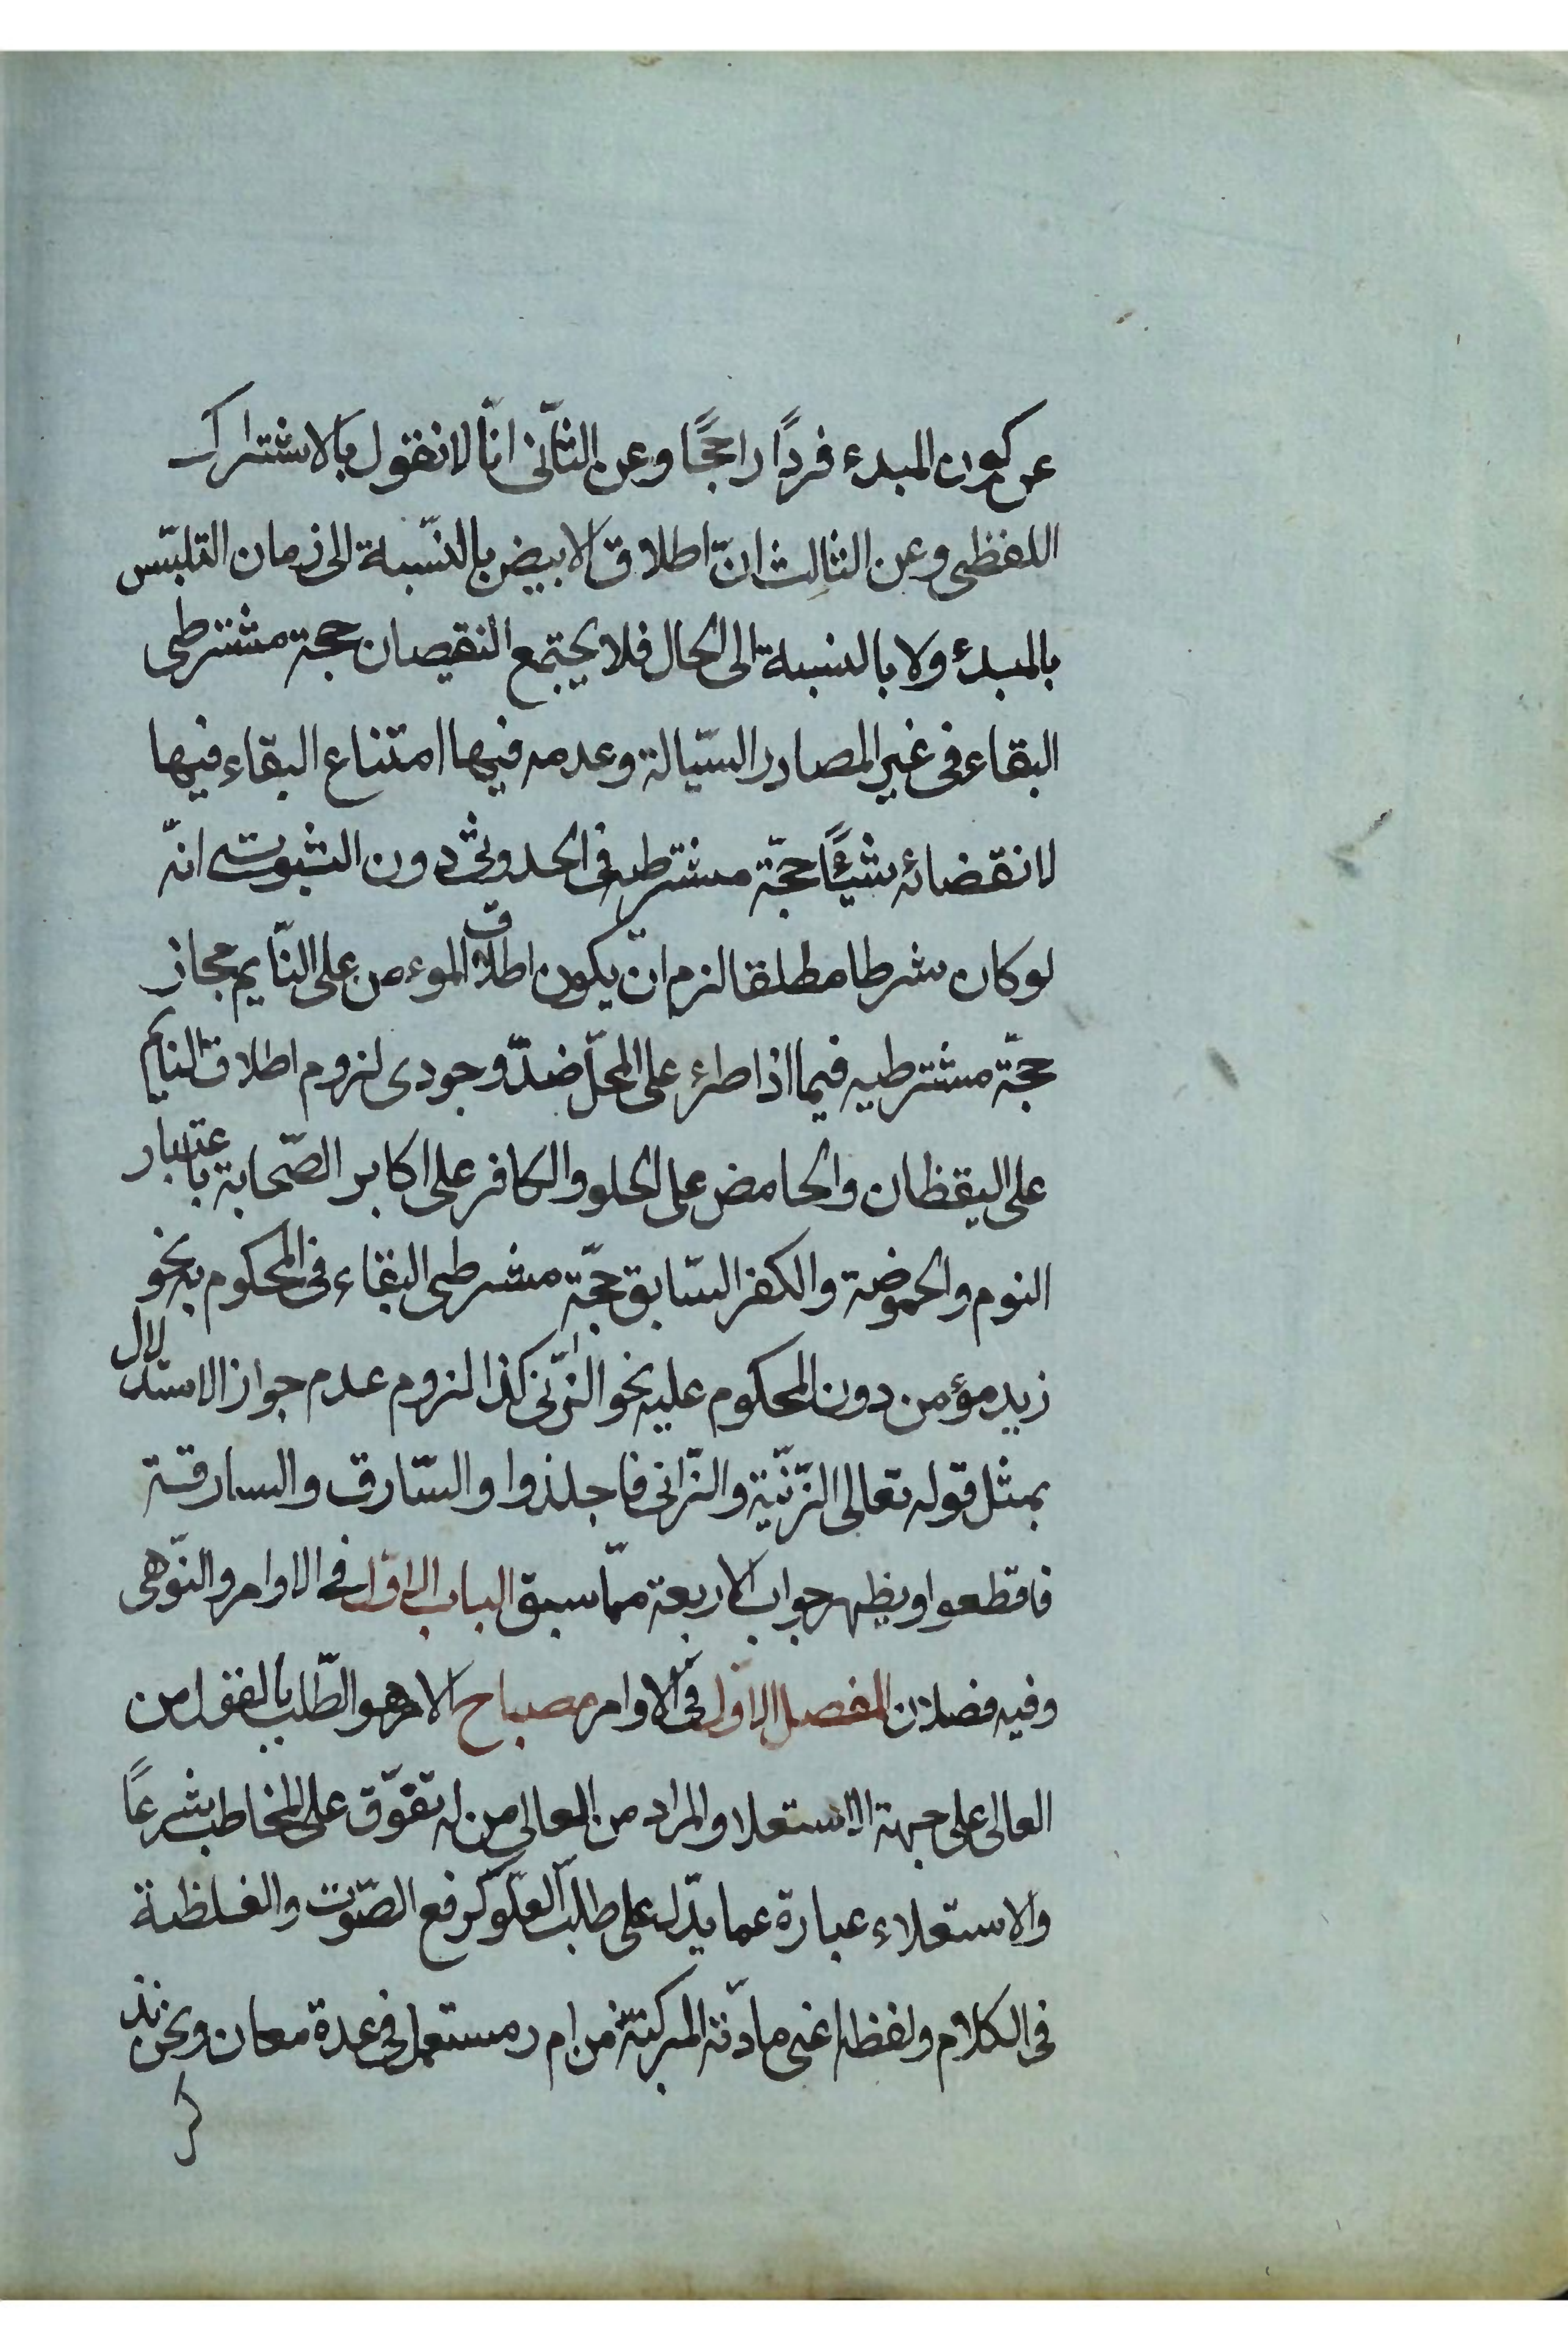 عن كون المبدء فردًا راجحًا وعن الثّانى انّا لا نقول بالاشتراك
اللفظى وعن الثالث انّ اطلاق الابيض بالنّسبة الى زمان التلبّس
بالمبدئ ولا بالنسبة الى الحال فلا يجتمع النقيصان حجة مشترطى
البقاء فى غير المصادر السّيالة وعدمه فيها امتناع البقاء فيها
لانقضائه شيئًا حجّة مشترطيه فى الحدوثى دون الثبوت انّه
لو كان شرطا مطلقا لزم ان يكون اطلاق الموءمن على النّايم مجاز
حجّة مشترطيه فيما اذا طرء على المحلّ ضدّ وجودى لزوم اطلاق النايم
على اليقظان والحامض على الحلو والكافر على اكابر الصّحابة باعتبار
النوم والحموضة والكفر السّابق حجّة مشرطى البقاء فى المحكوم به نحو
زيد مؤمن دون المحكوم عليه نحو الزّانى كذا لزوم عدم جواز الاستدلال
بمثل قوله تعالى الزّنيّة والزّانى فاجلذوا والسّارق والسارقة
فاقطعوا ويظهر جواب الاربعة ممّا سبق الباب الاوّل فى الاوامر والنّوهى
وفيه فصلان الفصل الاوّل فى الاوامر مصباح الامر هو الطّلب بالقول من
العالى على جهة الاستعلا والمراد من العالى من له تفوّق على المخاطب شرعًا
والاستعلاء عبارة عما يدّل على طلب العلّو كرفع الصّوت والغلظة
فى الكلام ولفظه اعنى مادّته المركبّة من ا م ر مستعمل فى عدة معان ونحن نذ
كر